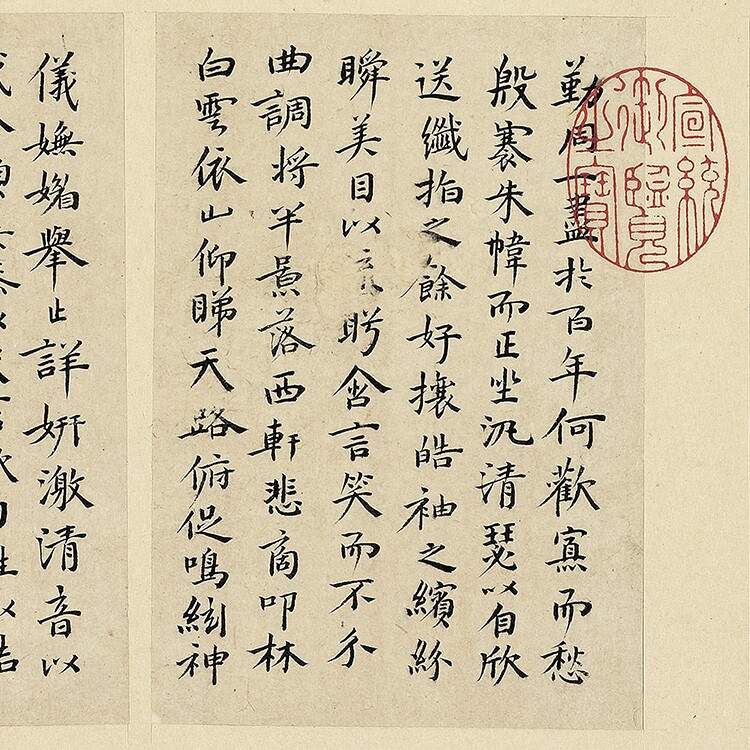 宣統
御覽
之寶
勤同一盡於百年何歡寡而愁
殷褰朱幃而正坐汎清瑟以自欣
送纖指之餘好攘皓袖之繽紛
瞬美目以眄含言笑而不分
曲調將半景落西軒悲商叩林
白雲依山仰睇天路俯促鳴絃神
儀嫵媚舉止詳妍激清音以